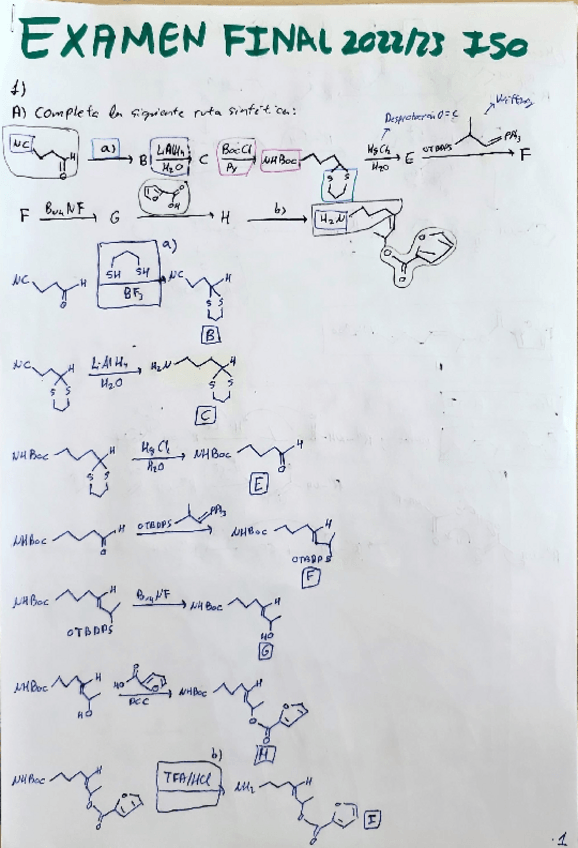 EXAMEN FINAL 2022/23 ISO
1)
A) Completa la siguiente ruta sintética:
Desprotección O=C Wittig
NC H O a) B LiAlH4 H2O C BocCl Py NHBoc S S HgCl2 H2O E OTBDPS PPh3 F
F Bu4NF G O OH H b) H2N O O O
a)
NC H O SH SH BF3 NC H S S
B
NC H S S LiAlH4 H2O H2N H S S
C
NHBoc H S S HgCl2 H2O NHBoc H O
E
NHBoc H O OTBDPS PPh3 NHBoc H OTBDPS
F
NHBoc H OTBDPS Bu4NF NHBoc H HO
G
NHBoc H HO HO O O DCC NHBoc H O O O
H
b)
NHBoc H O O O TFA/HCl NH2 H O O O I
1